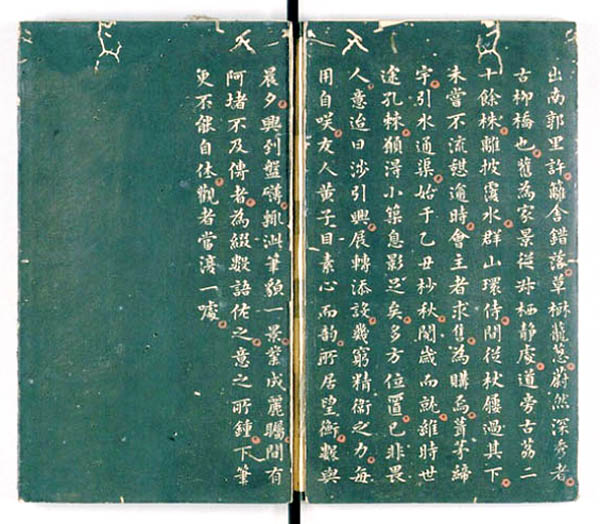 出南郭里許籬舍錯落草樹蘢葱蔚然深秀者
古柳橋也舊為家景從叔栖静處道旁古荔二
十餘株離披覆水群山環侍間從杖屨過其下
未嘗不流憇逾時會主者求售為購焉葺茅締
宇引水通渠始于乙丑杪秋閲歲而就雖時世
途孔棘願淂小築息影足矣多方位置已非畏
人意迨日涉引興展轉添設幾窮精衛之力每
用自咲友人黄子目素心而韵所居望衡數與
晨夕興到盤礴輒泚筆貌一景彚成麗矚間有
阿堵不及傳者為綴數語佐之意之所鍾下筆
更不能自休觀者當淂一噱